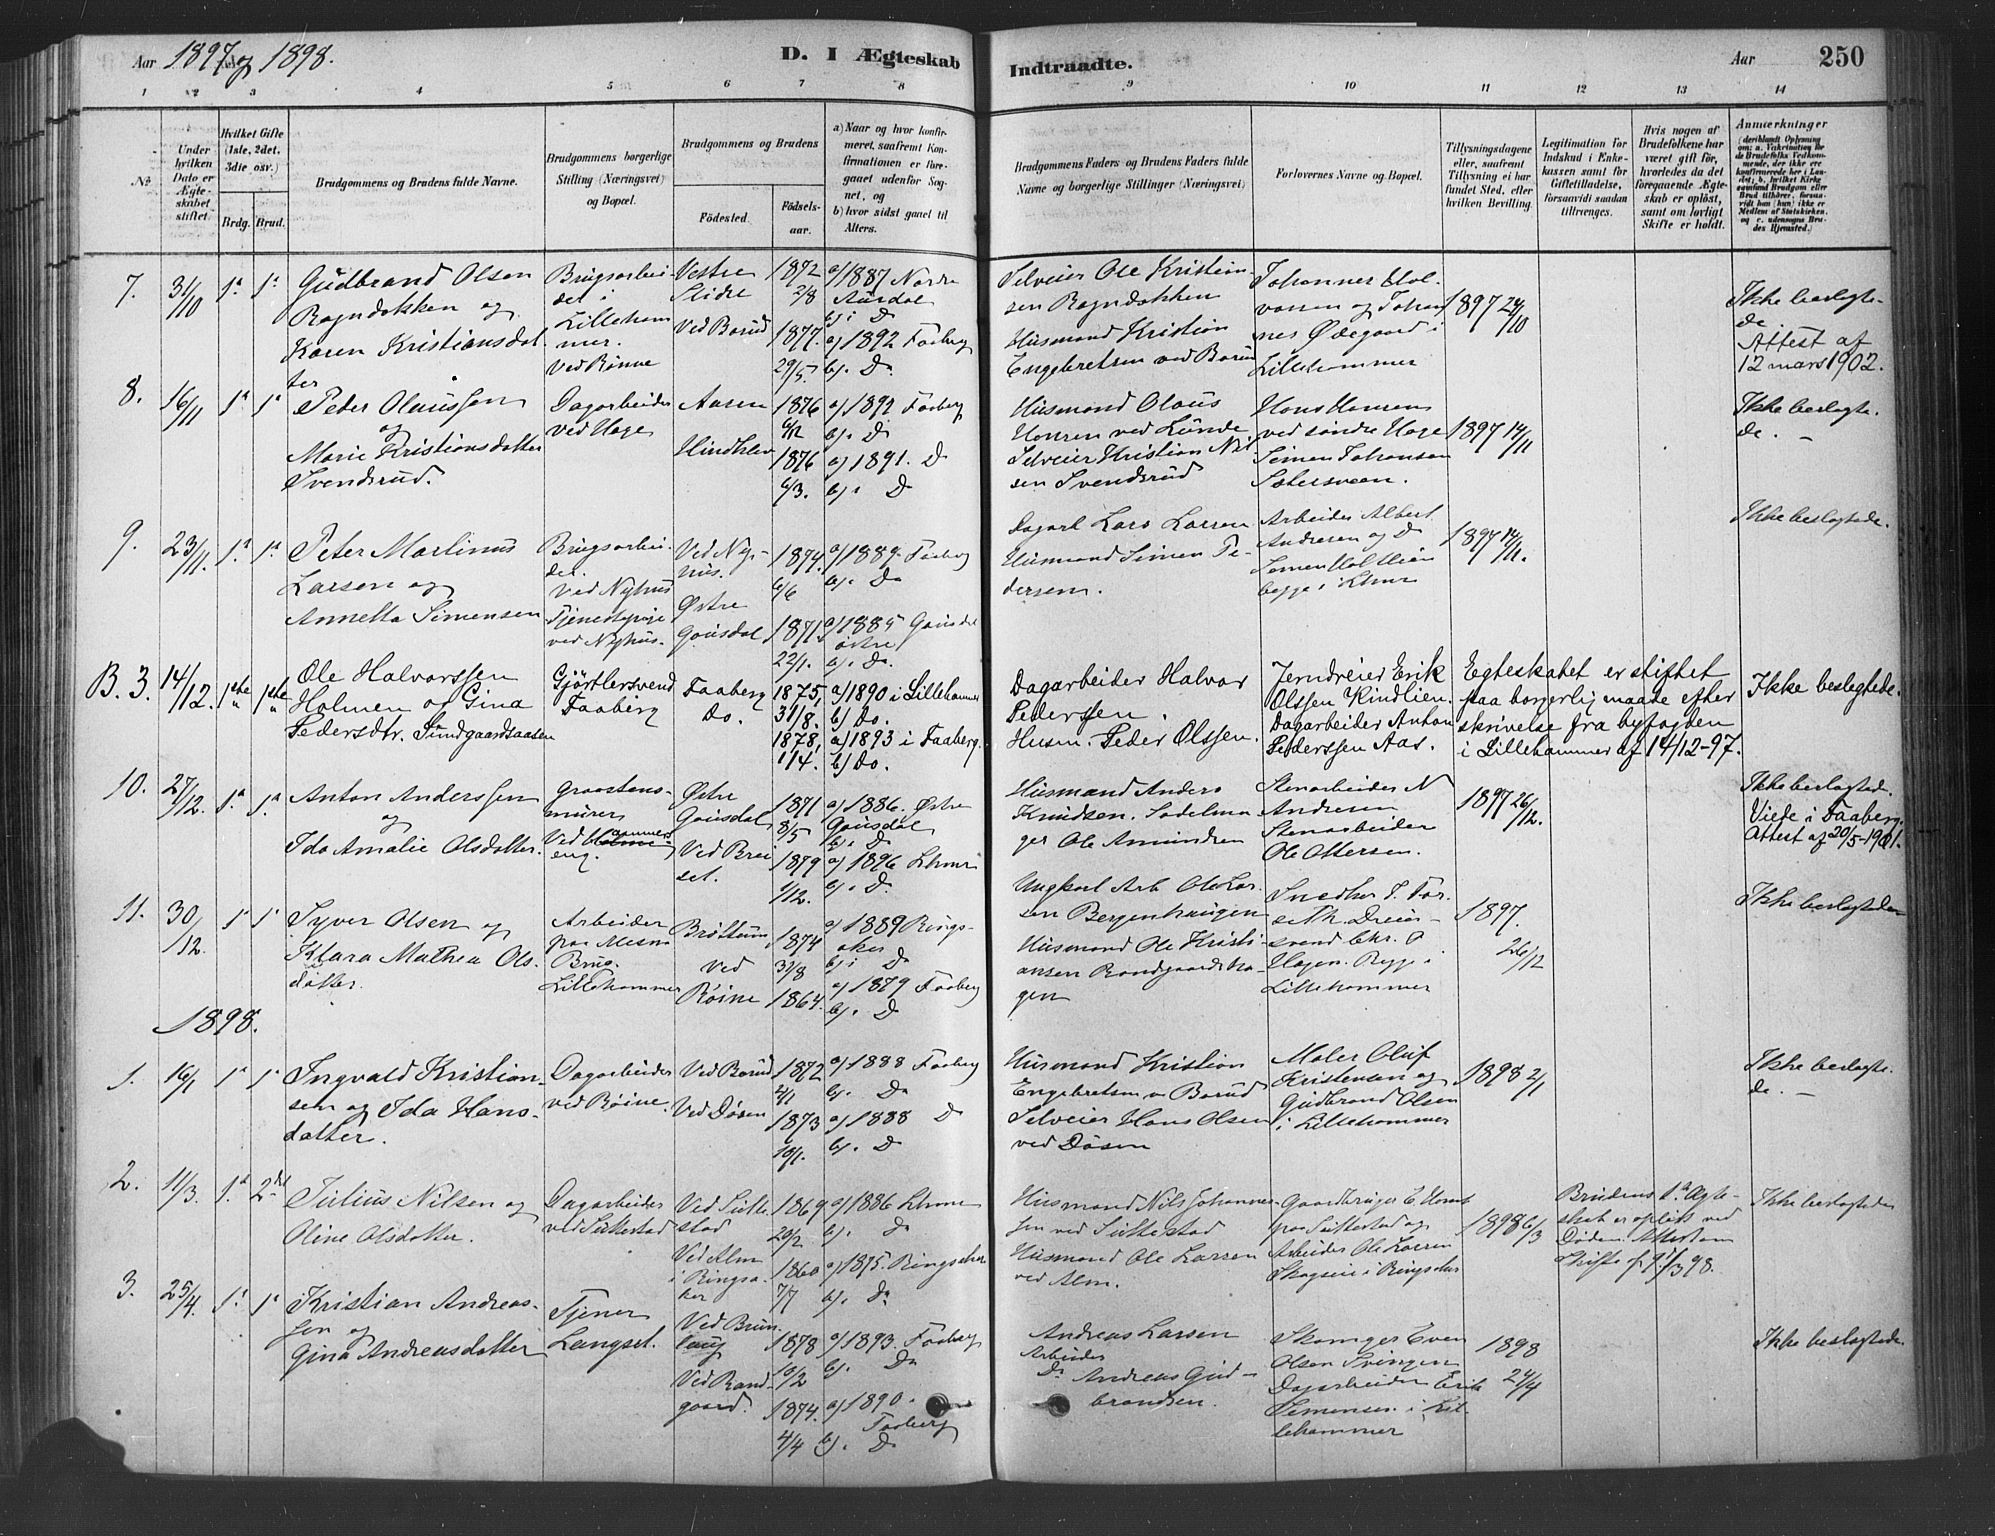 Aar 1897 og 1898.
D. I Ægteskab Indtraadte.
Aar 250
1 2 3 4 5 6 7 8 9 10 11 12 13 14
No
Under hvilken Dato er Ægteskabet stiftet.
Hvilket Gifte (1ste, 2det. 3die osv.)
Brdg. Brud.
Brudgommens og Brudens fulde Navne.
Brudgommens borgerlige Stilling (Næringsvei) og Bopæl.
Brudgommens og Brudens
Födested.
Födselsaar.
a) Naar og hvor konfirmeret, saafremt Konfirmationen er foregaaet udenfor Sognet, og
b) hvor sidst gaaet til Alters.
Brudgommens Faders og Brudens Faders fulde Navne og borgerlige Stillinger (Næringsvei)
Forlovernes Navne og Bopæl.
Tillysningsdagene eller, saafremt Tillysning ei har fundet Sted, efter hvilken Bevilling.
Legitimation for Indskud i Enkekassen samt for Giftetilladelse, forsaavidt saadan tiltrænges.
Hvis nogen af Brudefolkene har været gift för, hvorledes da det foregaaende Ægteskab er oplöst, samt om lovligt Skifte er holdt.
Anmærkninger
7. 31/10 1a 1a
Gudbrand Olsen
Rogndokken og
Karen Kristiansdatter
Brugsarbeider i
Lillehammer.
ved Rönne
Vestre Slidre
Ved Borud
1872 2/8
1877. 29/5.
a) 1887 Nordre Aurdal
b) i Do
a) 1892 Faaberg
b). Do.
Selveier Ole Kristiansen Rogndokken
Husmand Kristian
Engebretsen ved Borud
Johannes Halvorsen og Johannes Ødegaard i
Lillehammer
1897 24/10
Ikke beslegtede
Attest af
12 mars 1902.
8. 16/11 1a 1a
Peder Olaussen
og
Marie Kristiansdatter
Svendsrud.
Dagarbeider
ved Hage
Aasen
1876 6/12
1876 6/3.
a) 1892 Faaberg
b). Do
a) 1891. Do
b). Do
Husmand Olaus
Hansen ved Lunde
Selveier Kristian Nilsen Svendsrud
Hans Hansen
ved söndre Hage
Simen Johansen
Sætersveen.
1897 14/11
Ikke beslegtede. —
9. 23/11. 1a 1a
Peter Martinus
Larsen og
Annetta Simensen
Brugsarbeider.
ved Nyhus
Tjenestepige
ved Nyhus.
Ved Nyhus.
Østre
Gausdal
1874. 6/6
1871 22/1.
a) 1889. Faaberg
b). Do
a) 1885 Gausdal
östre
b). Do.
Dagarb Lars Larsen
Husmand Simen Pedersen.
Arbeider Albert
Andresen og Do
begge i
1897 14/11.
Ikke beslegtede.
B. 3. 14/12. 1ste 1ste
Ole Halvorssen
Holmen og Gina
Pedersdtr. Sundgaardsaasen
Gjörtlersvend
Faaberg
Faaberg
Do.
1875, 31/8.
1878, 1/4.
a) 1890 i Lillehammer
b) Do.
a) 1893 i Faaberg.
b) Do.
Dagarbeider Halvor
Pederssen.
Husm. Peder Olssen.
Jerndreier Erik
Olssen Kindlien.
Dagarbeider Anton
Pederssen Aas.
Egteskabet er stiftet
paa borgerlig maade efter
skrivelse fra byfogden
i Lillehammer af 14/12-97.
Ikke beslegtede.
10. 27/12. 1a 1a
Anton Anderssen
og
Ida Amalie Olsdatter.
Graastensmurer
Ved Hammereng.
Østre
Gausdal
Ved Breiset.
1871 8/5
1879 1/12.
a) 1886. Østre
Gausdal
b). Do
a) 1896 Lhmr
b). Do
Husmand Anders
Knudsen. Sadelmager Ole Amundsen
Stenarbeider N
Andresen
Stenarbeider
Ole Ottersen.
1897 26/12.
Ikke beslegtede.
Viede i Faaberg.
Attest af 20/5-1901.
11. 30/12. 1a 1a
Syver Olsen og
Klara Mathea Olsdatter.
Arbeider
paa Mesna
Brug.
Lillehammer
Bröttum
Ved
Röine
1874 31/8
1864.
a) 1889 Ringsaker
b) i Do
a) 1879 Faaberg
b). Do
Ungkarl Arb Ole Larsen Bergenhaugen
Husmand Ole Kristiansen Rondgaardshagen
Snedker
Dreiersvend Chr. O
Hagen. Begge i
Lillehammer
1897. 26/12
Ikke beslegtede
1898.
1. 16/1 1a 1a
Ingvald Kristiansen og Ida Hansdatter.
Dagarbeider
ved Röine.
Ved Borud
Ved Dösen
1872 2/1
1873 10/1.
a) 1888 Faaberg
b). Do
a) 1888 Do
b). Do
Husmand Kristian
Engebretsen v Borud
Selveier Hans Olsen
ved Dösen
Maler Oluf
Kristensen og
Gudbrand Olsen
i Lillehammer
1898 2/1
Ikke beslegtede. —
2. 11/3. 1a 2det
Julius Nilsen og
Oline Olsdatter.
Dagarbeider
ved Suttestad
Ved Suttestad
Ved Alm
i Ringsaker
1869 20/2
1860 7/7
a) 1886 Lhmr
b). Do
a) 1875. Ringsaker
b). Do
Husmand Nils Johannessen ved Suttestad
Husmand Ole Larsen
ved Alm.
paa Suttestad og
Arbeider Ole Larsen
i Ringsaker
1898 6/3
Brudens 1ste Ægteskab er oplöst ved
Döden. Attest om
Skifte af 9/3 98.
Ikke beslegtede
3. 25/4. 1a 1a
Kristian Andreassen og
Gina Andreasdatter
Tjener
Langset.
Ved Brunlaug
Ved Randgaard.
1878 10/2
1874. 4/4
a) 1893. Faaberg
b). Do
a) 1890.
Faaberg
b). Do
Andreas Larsen
Arbeider
Do Andreas Gudbrandsen.
Skomager Even
Olsen Svingen
Dagarbeider Erik
Simensen i Lillehammer
1898 24/4
Ikke beslegtede.